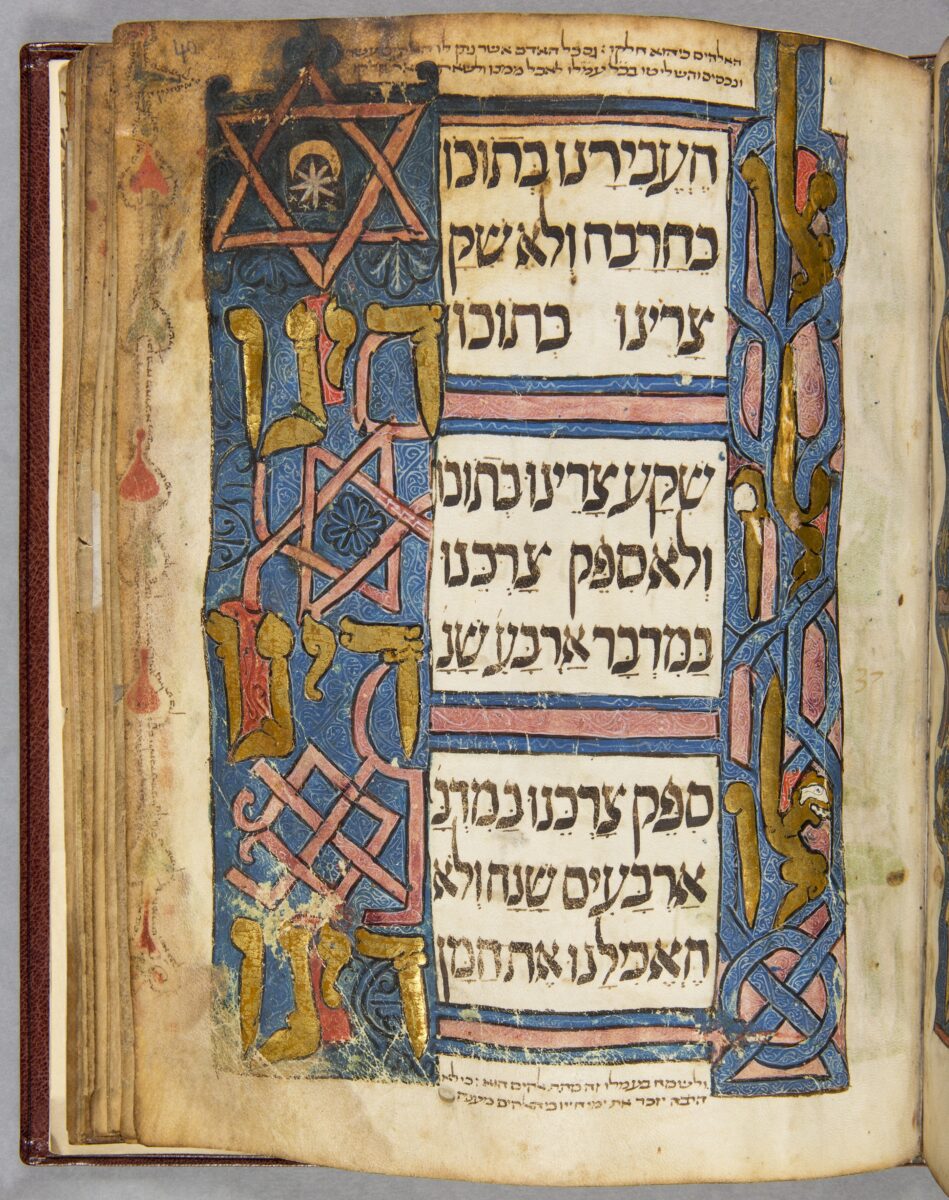 האלהים כי הוא חלקו : גם כל האדם אשר נתן לו האלהים עשר
ונכסים והשליטו בכל עמלו לאכל ממנו ולשאת
אלו
העבירנו בתוכו
בחרבה ולא שק
צרינו בתוכו
דיינו
אלו
שקע צרינו בתוכו
ולא ספק צרכנו
במדבר ארבע שנ
דיינו
אלו
ספק צרכנו במדב
ארבעים שנה ולא
האכילנו את המן
דיינו
ולשמח בעמלו זה מתת אלהים הוא : כי לא
הרבה יזכר את ימי חייו כי האלהים מענה
37